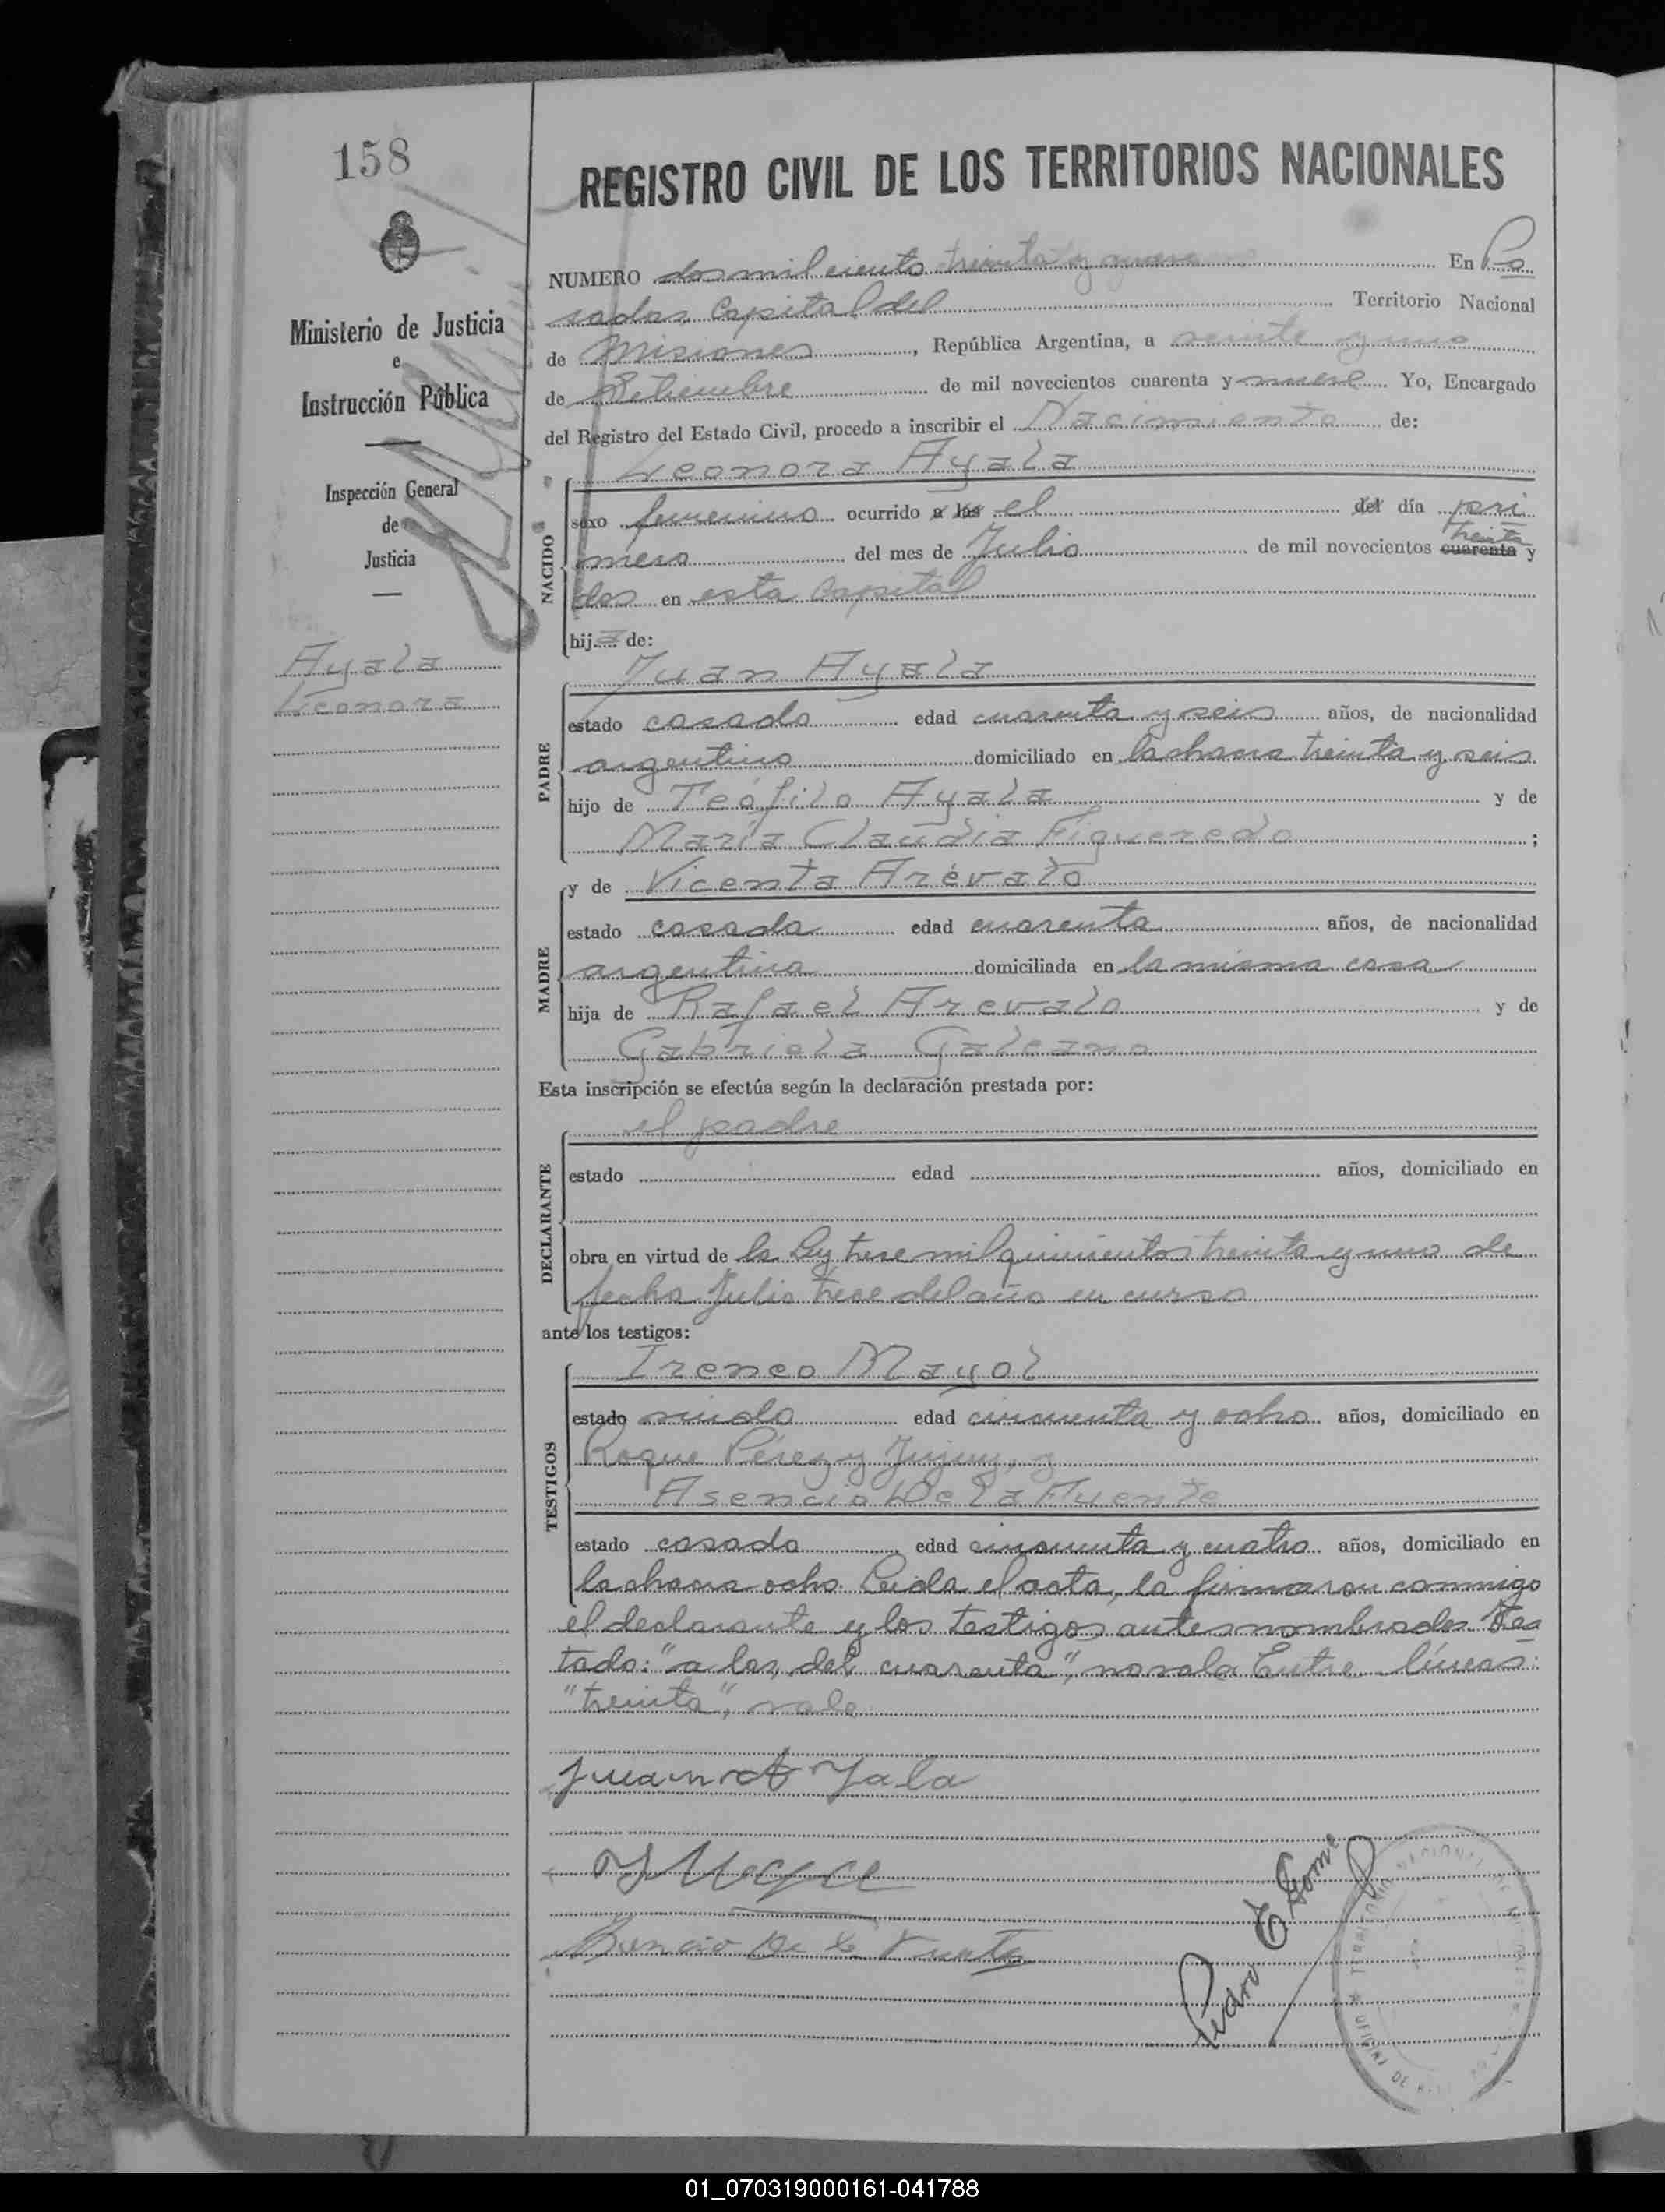 158
REGISTRO CIVIL DE LOS TERRITORIOS NACIONALES
Ministerio de Justicia
e
Instrucción Pública
Inspección General
de
Justicia
Ayala
Leonora
NUMERO dos mil ciento treinta y nueve En Po
sadas, Capital del Territorio Nacional
de Misiones, República Argentina, a veinte y uno
de Setiembre de mil novecientos cuarenta y nueve Yo, Encargado
del Registro del Estado Civil, procedo a inscribir el Nacimiento de:
Leonora Ayala
NACIDO
sexo femenino ocurrido a las el del día pri
treinta
mero del mes de Julio de mil novecientos cuarenta y
dos en esta Capital
hija de:
Juan Ayala
PADRE
estado casado edad cuarenta y seis años, de nacionalidad
argentino domiciliado en la chacra treinta y seis
hijo de Teófilo Ayala y de
María Claudia Figueredo;
y de Vicenta Arévalo
MADRE
estado casada edad cuarenta años, de nacionalidad
argentina domiciliada en la misma casa
hija de Rafael Arevalo y de
Gabriela Galeano
Esta inscripción se efectúa según la declaración prestada por:
el padre
DECLARANTE
estado edad años, domiciliado en
obra en virtud de la Ley trece mil quinientos treinta y uno de
fecha Julio trece del año en curso
ante los testigos:
Ireneo Mayol
TESTIGOS
estado viudo edad cincuenta y ocho años, domiciliado en
Roque Pérez y Jujuy, y
Asencio De la Fuente
estado casado edad cincuenta y cuatro años, domiciliado en
la chacra ocho. Leida el acta, la firmaron conmigo
el declarante y los testigos antes nombrados. Tes
tado: "a las, del, cuarenta", no vale. Entre líneas:
"treinta", vale
Juan Ayala
Asencio De la Fuente
Pedro E Gome
01_070319000161-041788